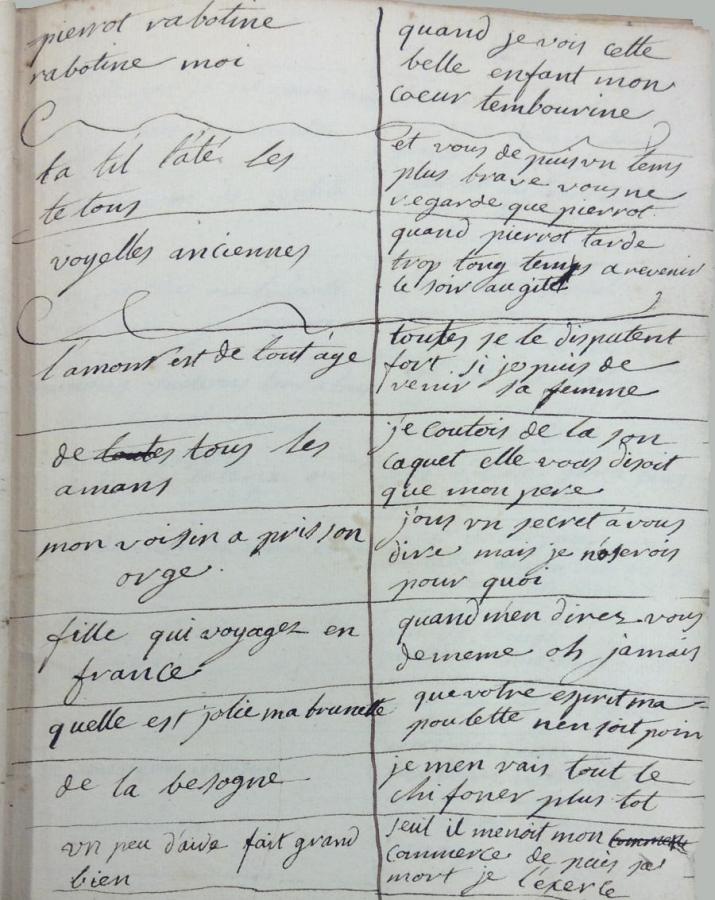 pierrot rabotine
rabotine moi
quand je vois cette
belle enfant mon
coeur tembourine
ta til tâté les
tetons
et vous depuis un tems
plus brave vous ne
regarde que pierrot
voyelles anciennes
quand pierrot tarde
trop long temps a revenir
le soir au gite
l'amour est de tout age
toutes se le disputent
fort si je puis de
venir sa femme
de toutes tous les
amans
je coutois de la son
caquet elle vous disoit
que mon pere
mon voisin a pris son
orge
j'ous vn secret à vous
dire mais je noserois
pour quoi
fille qui voyagez en
france
quand men direz vous
dememe oh jamais
quelle est jolie ma brunette
que votre esprit ma
poulette nen soit poin
de la besogne
je men vais tout le
chifoner plus tot
vn peu d'aide fait grand
bien
seul il menoit mon commerce
commerce de puis sa
mort je l'éxerce